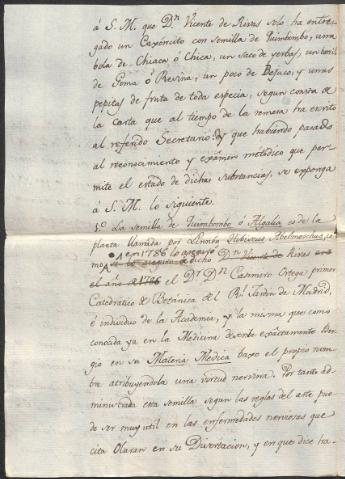 á S. M. que Dn. Vicente de Rieux solo ha entre-
gado un Caxoncito con semilla de Quimbombo, una
bola de Chiaca ó Chica, un saco de yerbas, un baril
de Goma ó Resina, un poco de Bejuco, y unas
pepitas de fruta de toda especia, segun consta de
la carta que al tiempo de la remesa ha escrito
al referido Secretario; y que habiendo pasado
al reconocimiento y exámen metódico que per-
mite el estado de dichas substancias, se exponga
á S. M. lo siguiente.
1.º La semilla de Quimbombo ó Algalia es de la
planta llamada por Linneo Hibiscus Abelmoschus, co-
mo en 1786 lo aseguró dicho Dn. de Rieux
el año de 1786 el Dr. Dn. Casimiro Ortega primer
Catedratico de Botánica del Rl. Jardin de Madrid,
é individuo de la Academia, y la misma que como
conocida ya en la Medicina describe exactamente Ber-
gio en su Materia Medica baxo el propio nom-
bre atribuyendola una virtud nervina. Por tanto ad-
ministrada esta semilla segun las reglas del arte pue-
de ser muy util en las enfermedades nerviosas que
cita Olaran en su Disertacion, y en que dice ha-